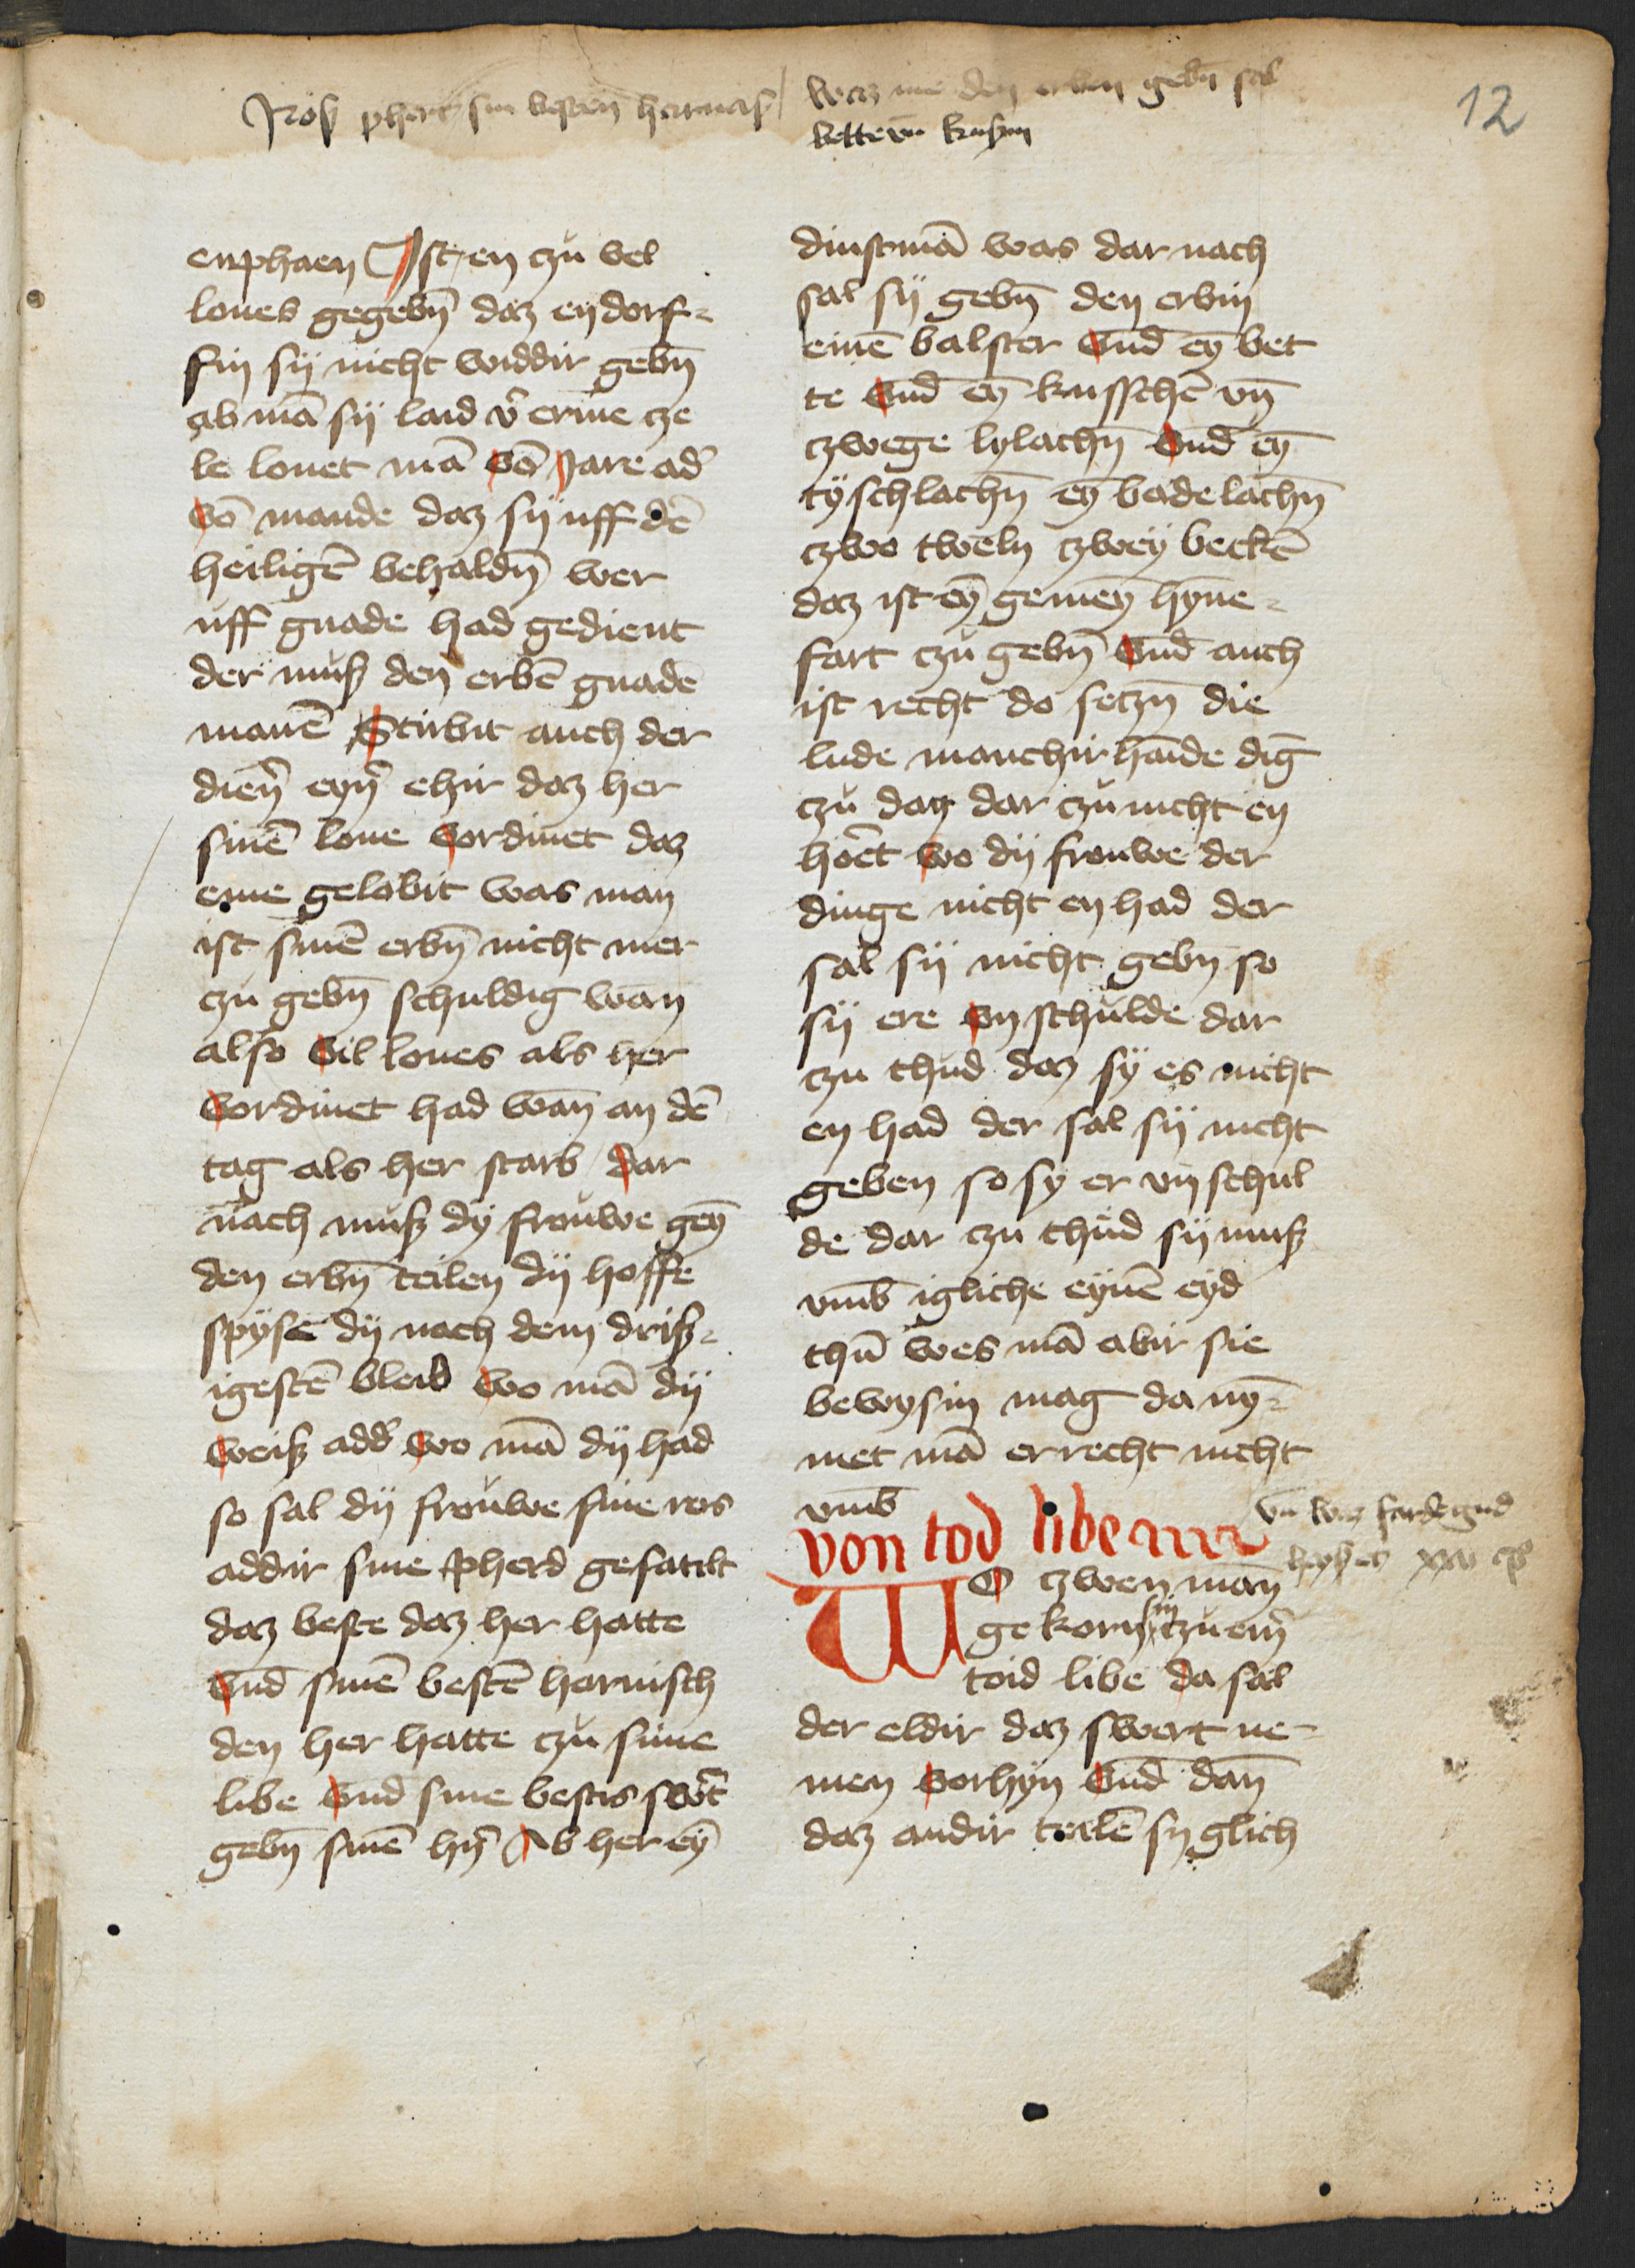 Roß phert sin besten harnas
waz me den erben gebn̄ sal
bette vn̄ kussin
12
enphaen Ist en czu vel
lones gegebn̄ daz en dorf⸗
fin sy nicht widdir gebn̄
ab mā sij laid
le lonet mā vō Jare ad̄
vō mande daz sij uff dē
heiligē behaldn̄ wer
uff gnade had gedient
der muß den erbē gnade
manē Stirbit auch der
dien̄ eyn̄ ehir daz her
sinē lone vordinet daz
eme gelobit was man
ist sinē erbn̄ nicht mer
czu gebn̄ schuldig wan
also vil lones als her
vordinet had wan̄ an dē
tag als her starb dar
nach muß dy frouwe gen̄
den erbn̄ teilen dij hoffe
spyse dij noch dem driß⸗
igestē bleib wo mā dij
weiß add̄ wo mā dij had
so sal dij frouwe sine ros
addir sine pherd gesatilt
daz beste daz her hatte
vnd sinē bestē harnisch
den her hatte czu sime
libe vnd sine bestis sw̄t
gebn̄ sinē hn̄ Ab her eȳ
dinstmā was dar nach
sal sij gebn̄ den erbin
einē balster vnd eȳ bet
te vnd eȳ kusschē vn̄
czwege lylachn̄ vnd eȳ
tyschlachn̄ eȳ badelachn̄
czwo tweln czwey beckē
daz ist eȳ gemeȳ hyne⸗
fart czu gebn̄ vnd auch
ist recht do setzn̄ die
lude manchir hande diḡ
czu daz dar czu nicht en
hoēt wo dij frouwe der
dinge nicht en had der
sal sij nicht gebn̄ so
sij ere vnschulde dar
czu thud daz sy es nicht
en had der sal sij nicht
geben so sy er vnschul
de dar czu thud sij muß
vmb igliche eynē eyd
thū wes mā abir sie
bewysin mag da ny̅⸗
met mā er recht nicht
vmb
von tod libe
vn̄ waz farde gud
heyßet
WO czwen man̄
gekorn sin czu ein̄
toid libe da sal
der eldir daz swert ne⸗
men vorhyn vnd dan̄
daz andir teilē sy glich